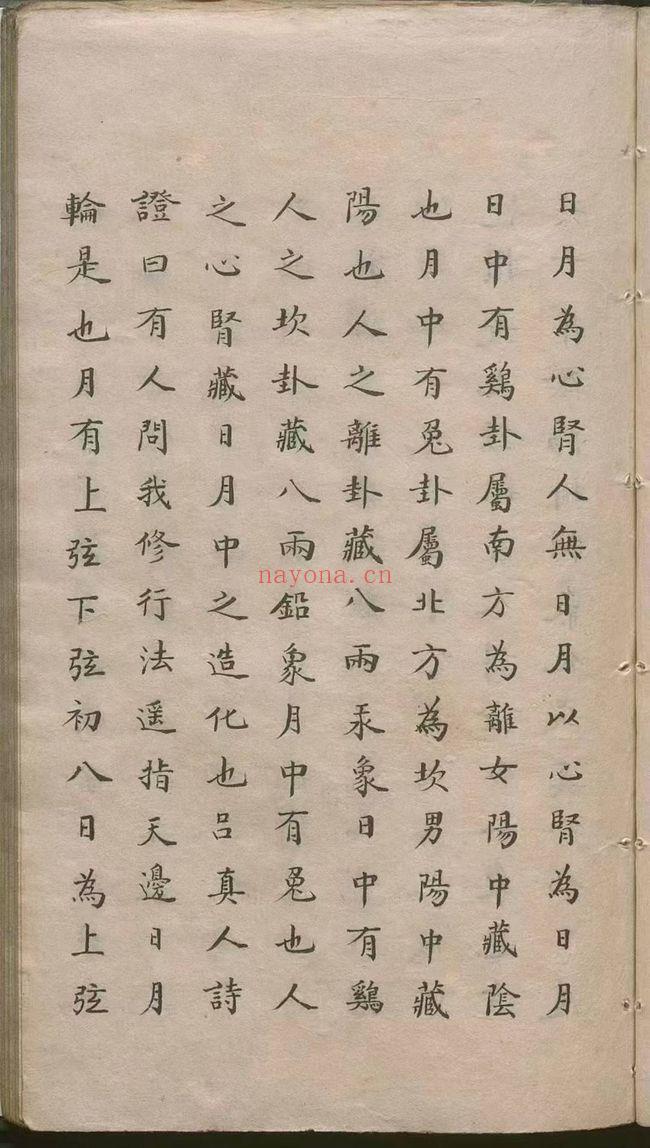 日月為心腎人無日月以心腎為日月
日中有鷄卦屬南方為離女陽中藏陰
也月中有兔卦屬北方為坎男陽中藏
陽也人之離卦藏八兩汞象日中有鷄
人之坎卦藏八兩鉛象月中有兔也人
之心腎藏日月中之造化也吕真人詩
證曰有人問我修行法遥指天邊日月
輪是也月有上弦下弦初八日為上弦
nayona.cn